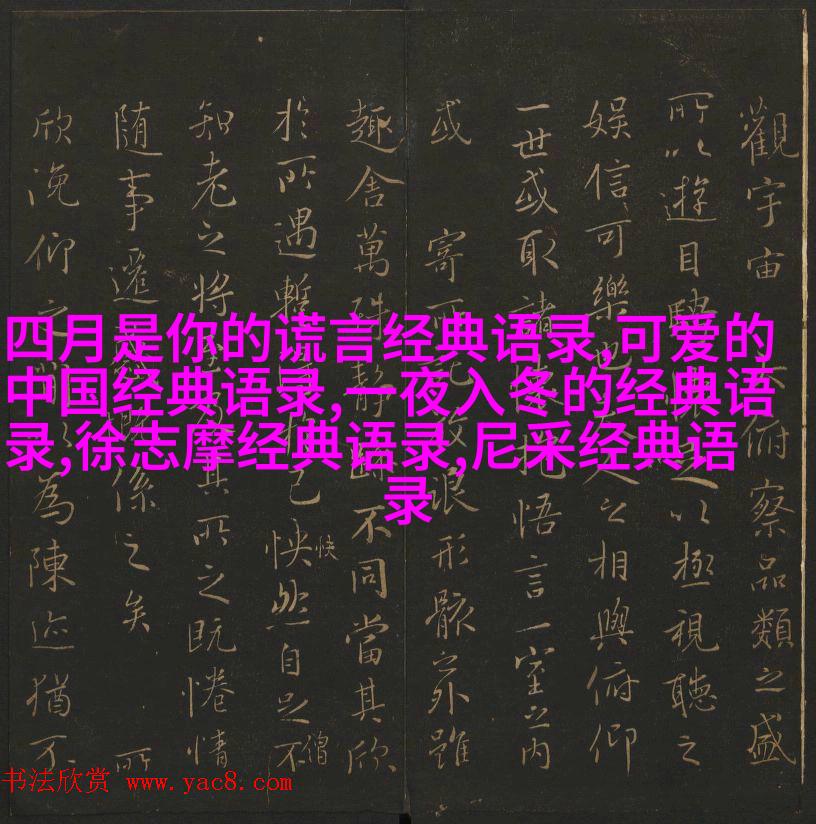 四月是你的谎言经典语录,可爱的
中国经典语录,一夜入冬的经典语
录,徐志摩经典语录,尼采经典语
录
觀宇宙俯察品類之盛
所以遊目騁足以極視聽之
娛信可樂也人之相與俯仰
一世或取諸抱悟言一室之內
或寄所放浪形骸之外雖
趣舍萬殊靜不同當其欣
於所遇暫己怏然自足不
快
僧
知老之將其所之既惓情
隨事遷係之矣所
欣俛仰之為陳迹猶不
书法欣赏 www.yac8.com